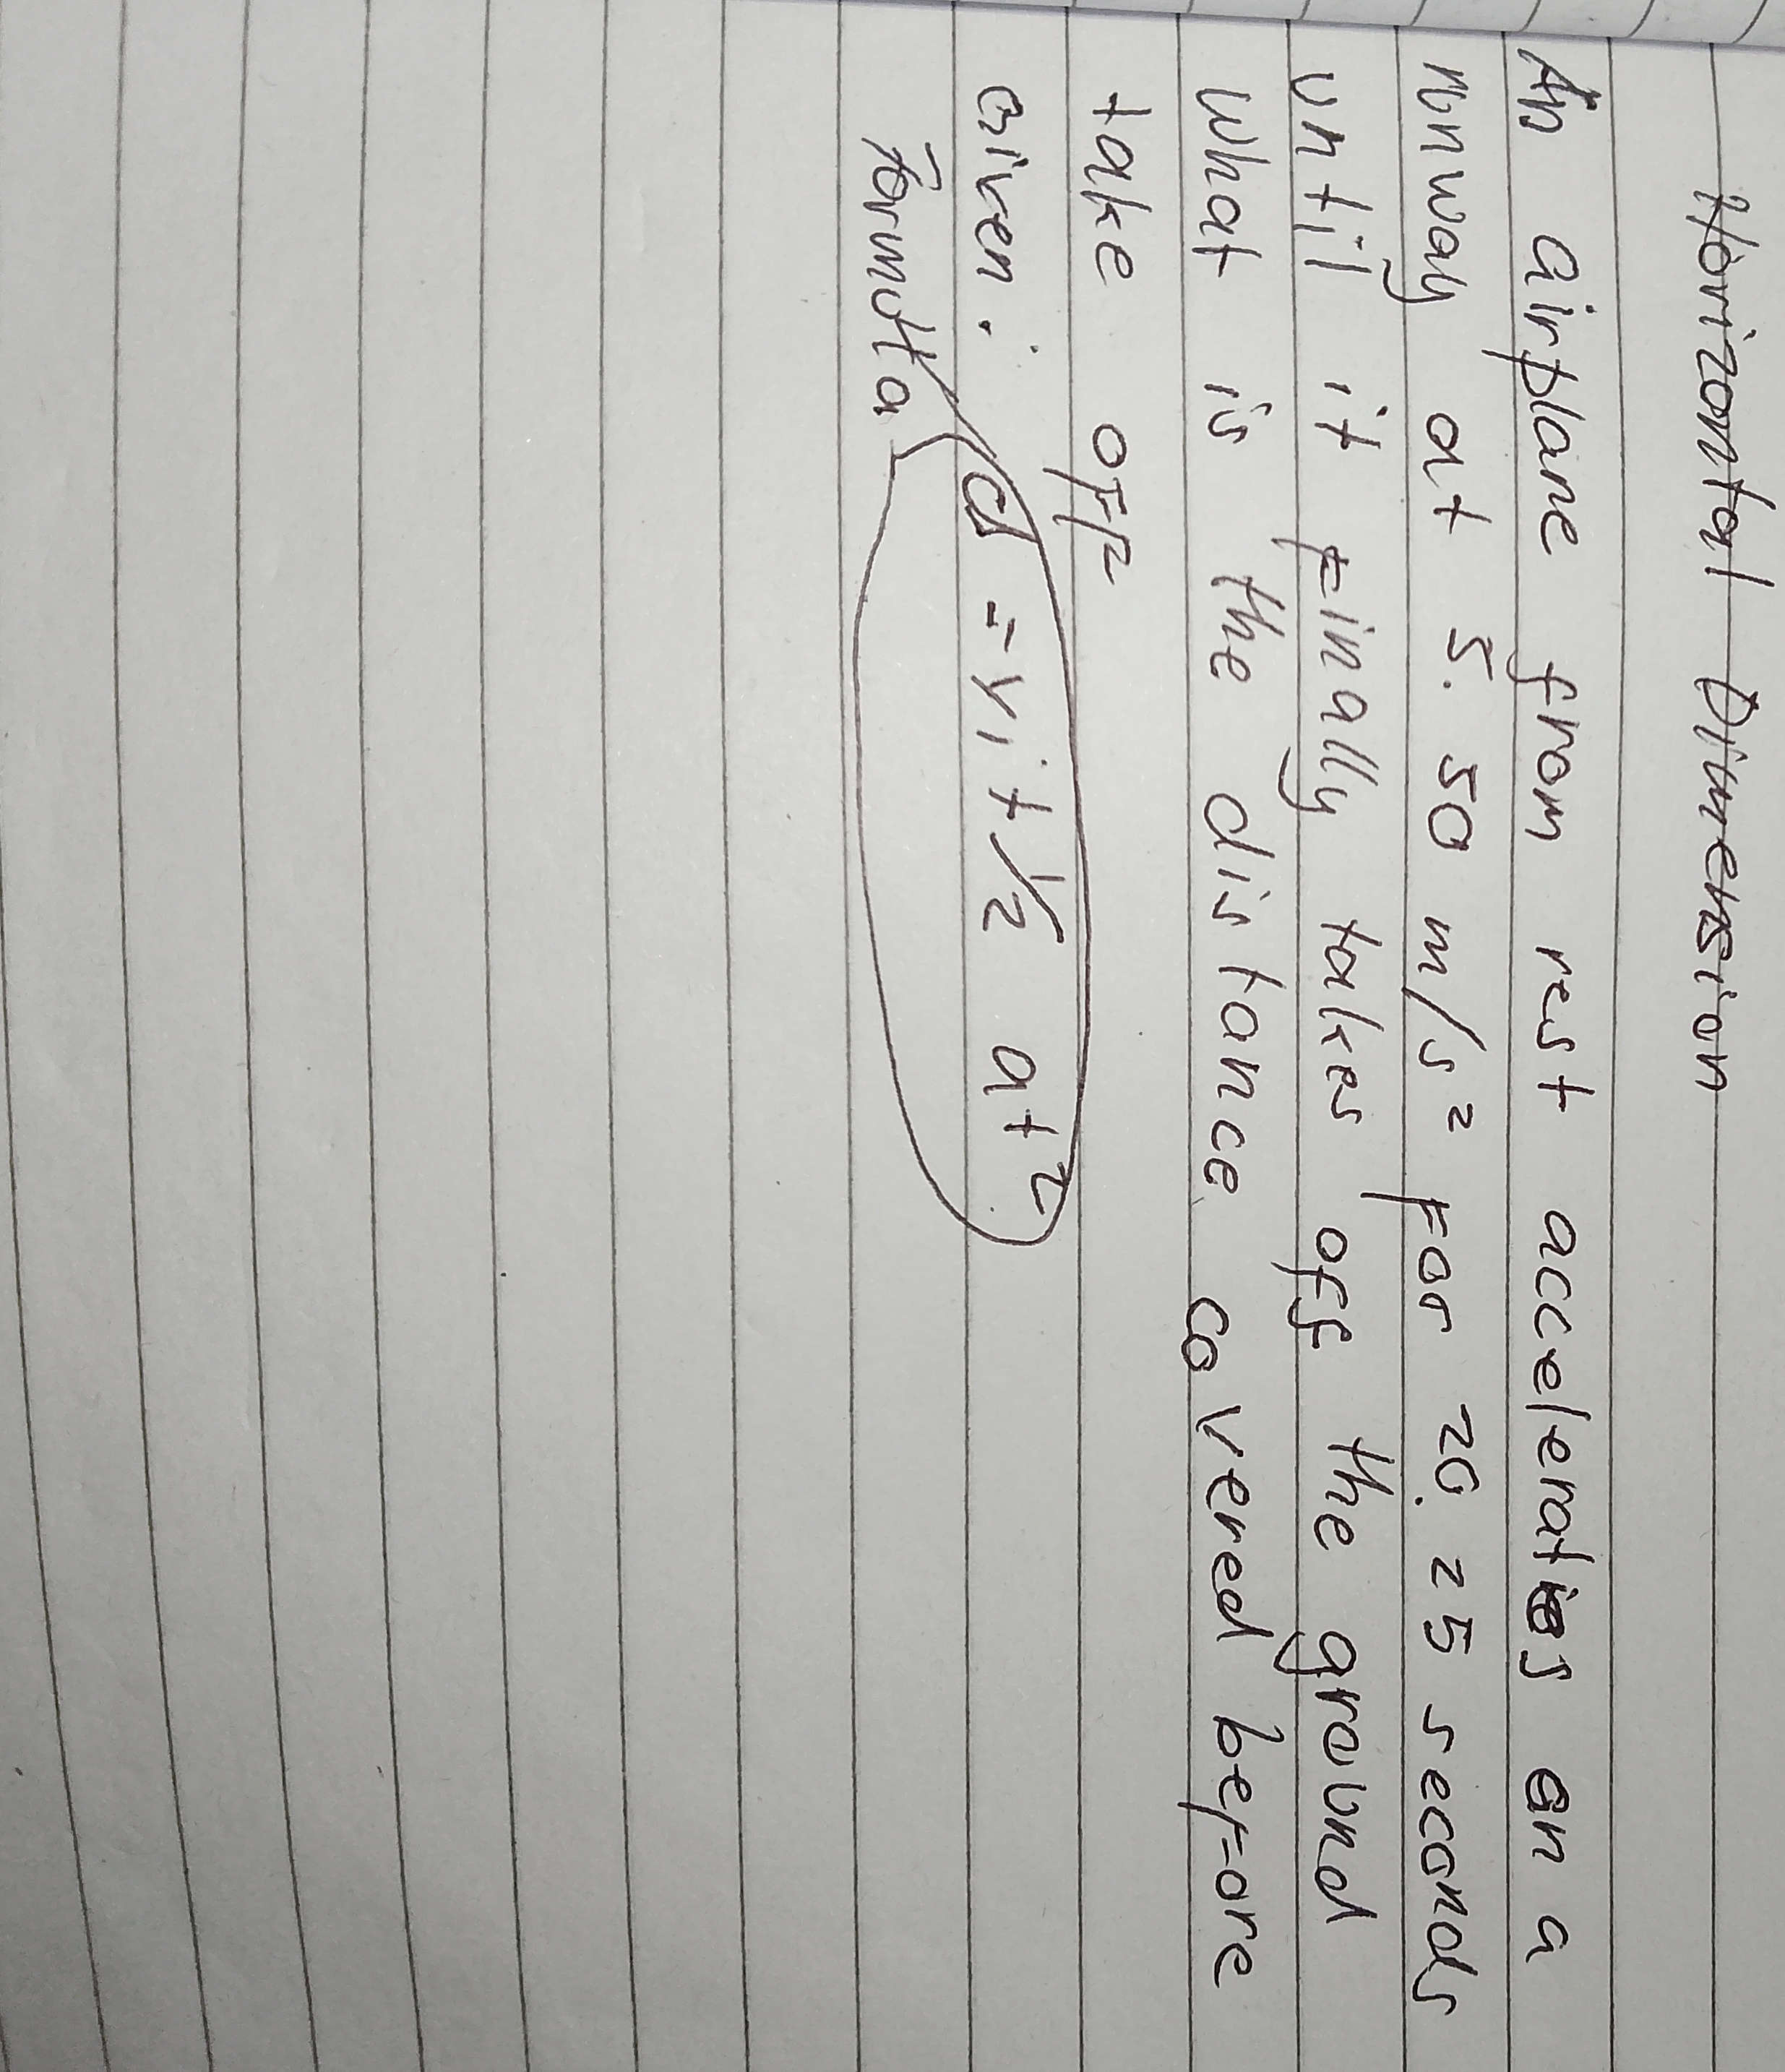 Horizontal Dimension
An airplane from rest accelerates on a
runway at 5.50 m/s² for 20.25 seconds
until it finally takes off the ground
What is the distance covered before
take off
Given: d = vit + 1/2 at²
Formula